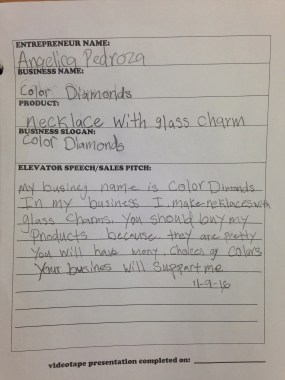 ENTREPRENEUR NAME:
Angelica Pedroza
BUSINESS NAME:
Color Diamonds
PRODUCT:
necklace with glass charm
BUSINESS SLOGAN:
Color Diamonds
ELEVATOR SPEECH/SALES PITCH:
my businey name is Color Dimonds
In my business I make neklaces with
glass Charms. You should buy my
Products because they are pretty
You will have many Choices of Colors
Your busines will Support me
11-9-16
videotape presentation completed on: